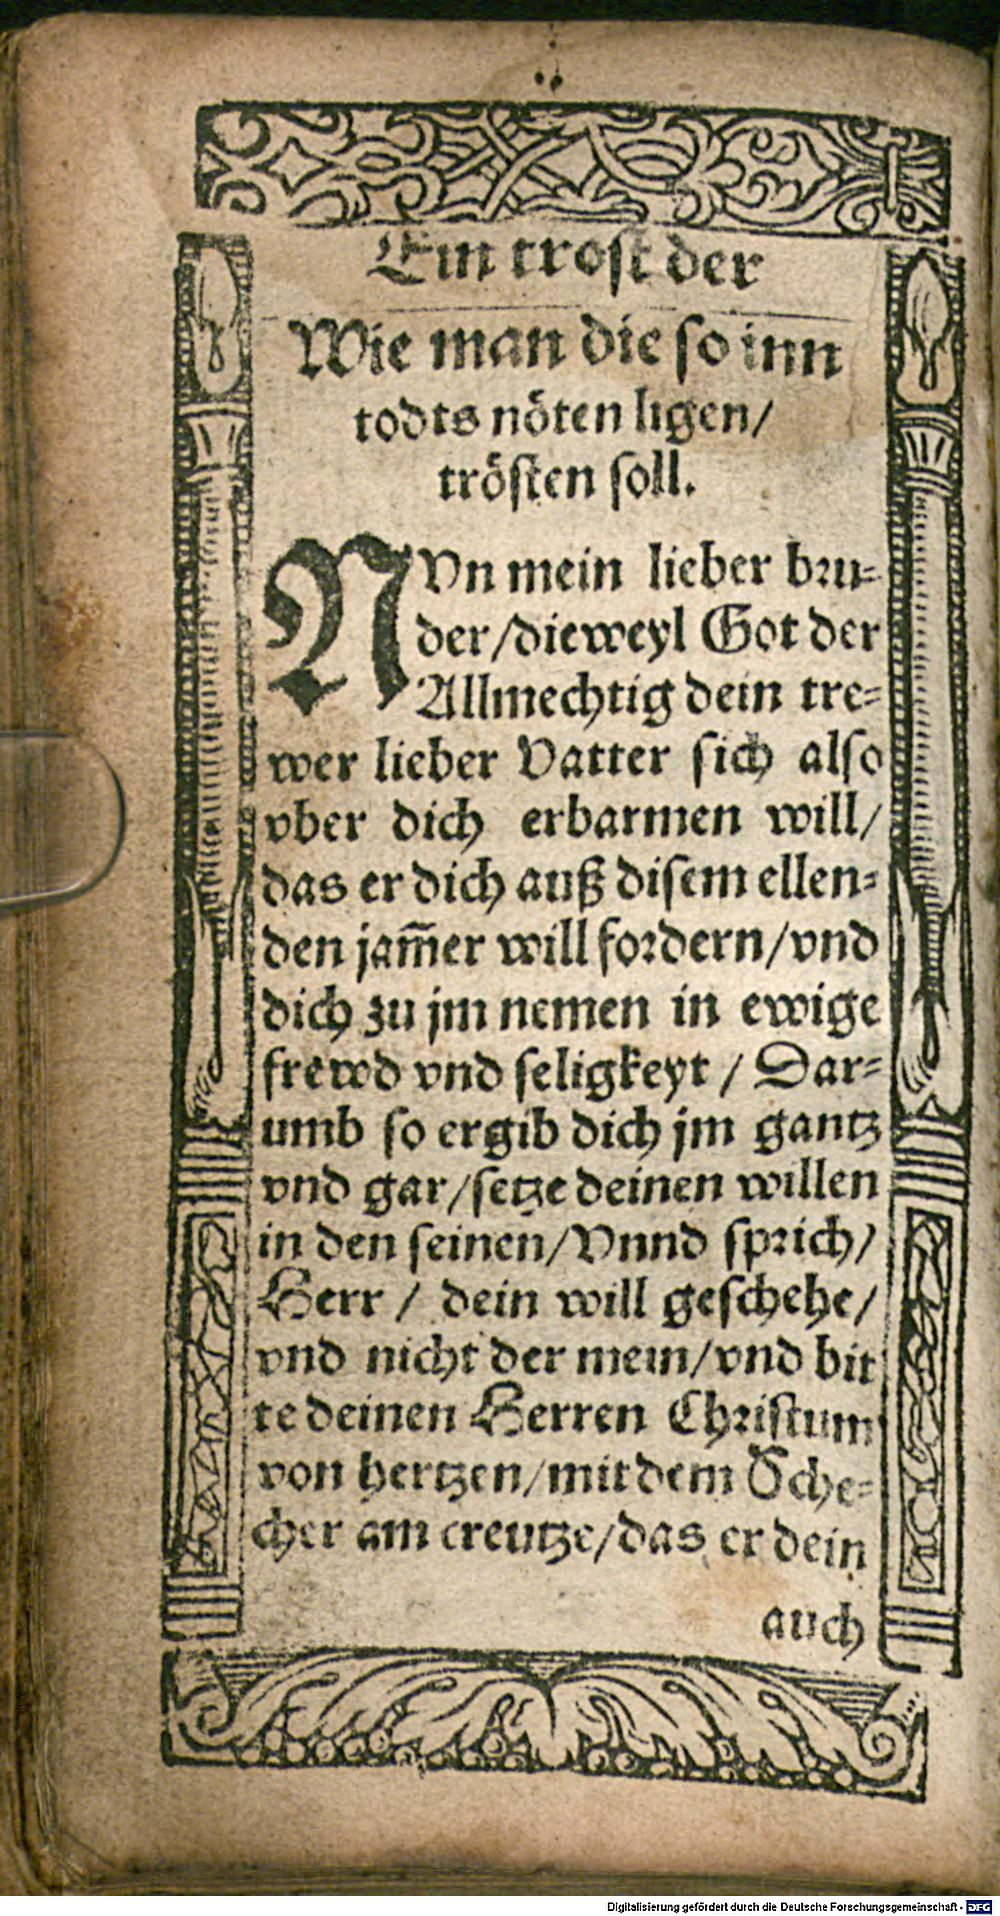 Ein trost der
Wie man die so inn
todts nöten ligen/
trösten soll.
NVn mein lieber bru⸗
der/dieweyl Got der
Allmechtig dein tre⸗
wer lieber Vatter sich also
vber dich erbarmen will/
das er dich auß disem ellen⸗
den jam̄er will fordern/vnd
dich zu jm nemen in ewige
frewd vnd seligkeyt / Dar⸗
umb so ergib dich jm gantz
vnd gar/setze deinen willen
in den seinen/Vnnd sprich/
Herr / dein will geschehe/
vnd nicht der mein/vnd bit
te deinen Herren Christum
von hertzen/mit dem Sche⸗
cher am creutze/das er dein
auch
Digitalisierung gefördert durch die Deutsche Forschungsgemeinschaft - DFG